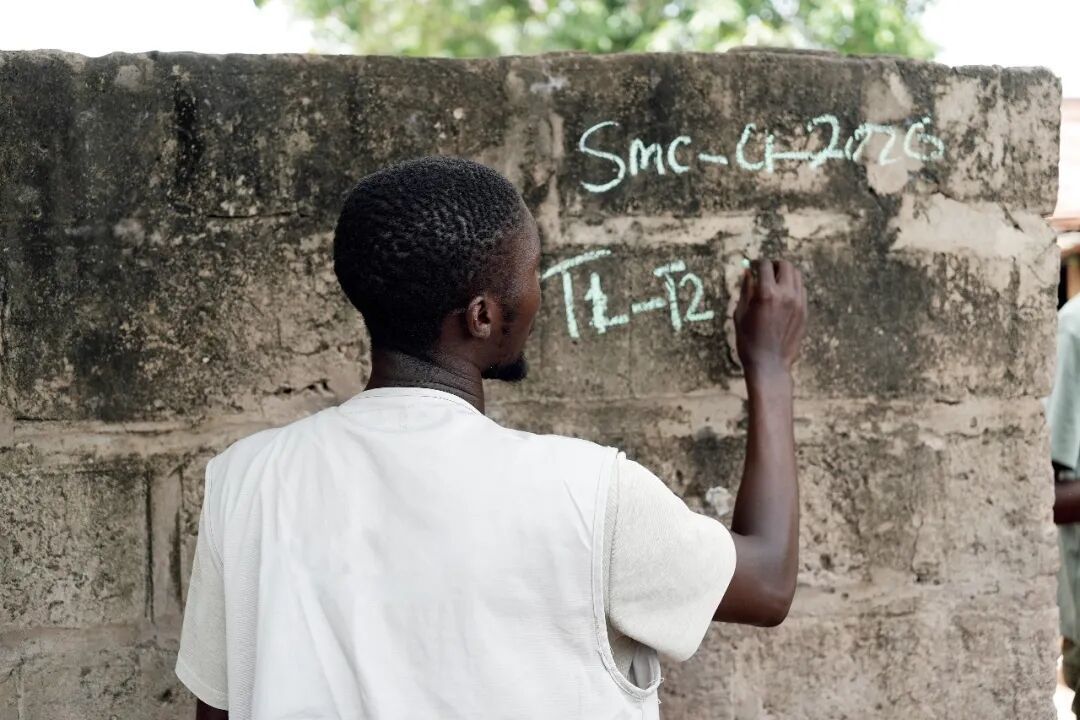 Smc-C1-2026
T1-T2